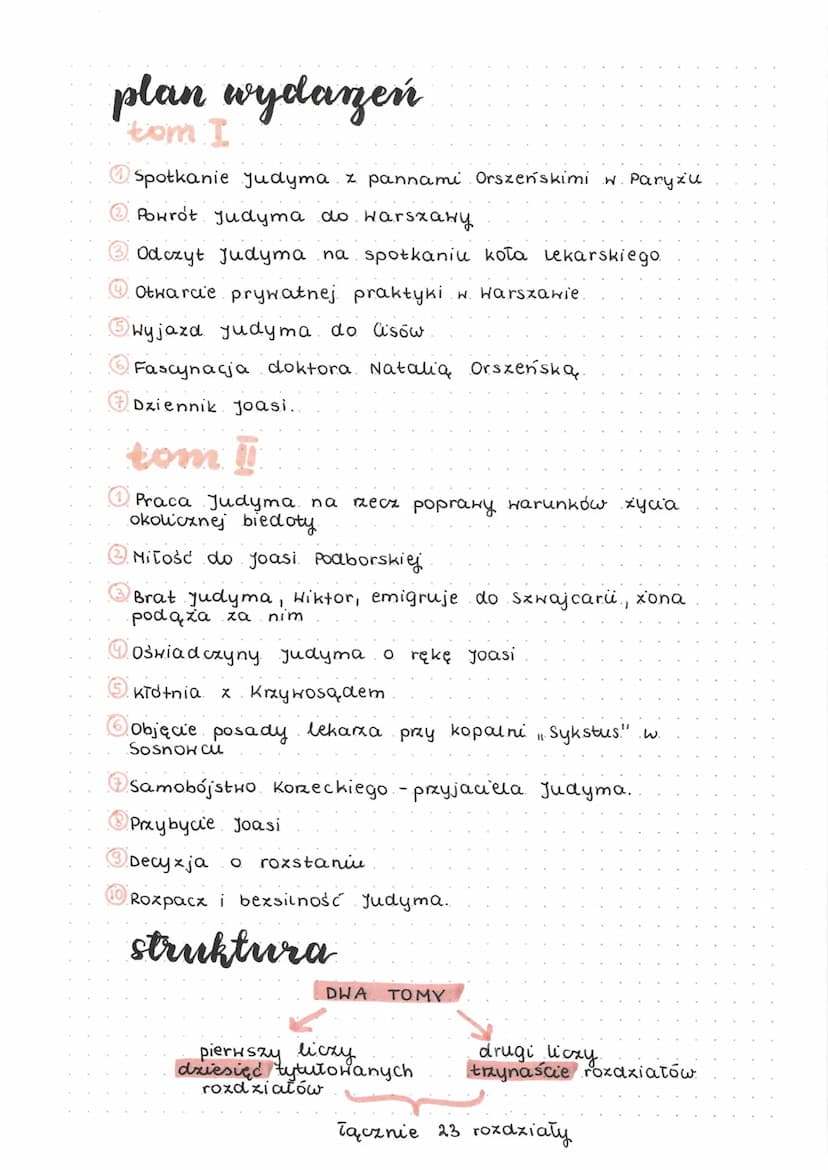 plan wydarzeń
tom I
① Spotkanie Judyma z pannami Orszeńskimi w Paryżu
② Powrót Judyma do Warszawy
③ Odczyt Judyma na spotkaniu koła lekarskiego
④ Otwarcie prywatnej praktyki w Warszawie
⑤ Wyjazd Judyma do Cisów
⑥ Fascynacja doktora Natalią Orszeńską
⑦ Dziennik Joasi.
tom II
① Praca Judyma na rzecz poprawy warunków życia
okolicznej biedoty
② Miłość do Joasi Podborskiej
③ Brat Judyma, Wiktor, emigruje do Szwajcarii, żona
podąża za nim
④ Oświadczyny Judyma o rękę Joasi
⑤ Kłótnia z Krzywosądem
⑥ Objęcie posady lekarza przy kopalni „Sykstus" w
Sosnowcu
⑦ Samobójstwo Korzeckiego - przyjaciela Judyma.
⑧ Przybycie Joasi
⑨ Decyzja o rozstaniu
⑩ Rozpacz i bezsilność Judyma.
struktura
DWA TOMY
pierwszy liczy
dziesięć tytułowanych
rozdziałów
drugi liczy
trzynaście rozdziałów
łącznie 23 rozdziały